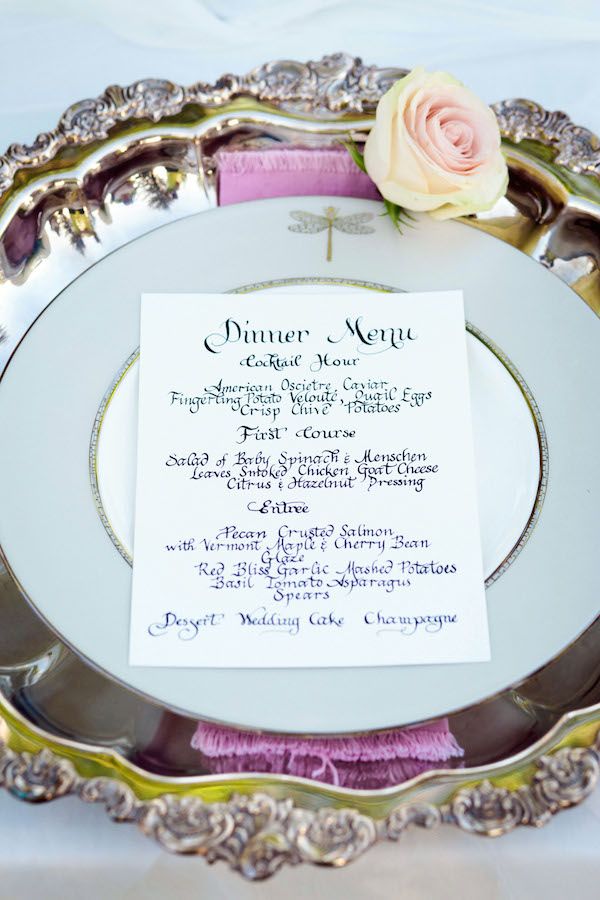 Dinner Menu
Cocktail Hour
American Oscietre Caviar
Fingerling Potato Velouté, Quail Eggs
Crisp Chive Potatoes
First Course
Salad of Baby Spinach & Menschen
Leaves Smoked Chicken Goat Cheese
Citrus & Hazelnut Dressing
Entree
Pecan Crusted Salmon
with Vermont Maple & Cherry Bean
Glaze
Red Bliss Garlic Mashed Potatoes
Basil Tomato Asparagus
Spears
Dessert Wedding Cake Champagne